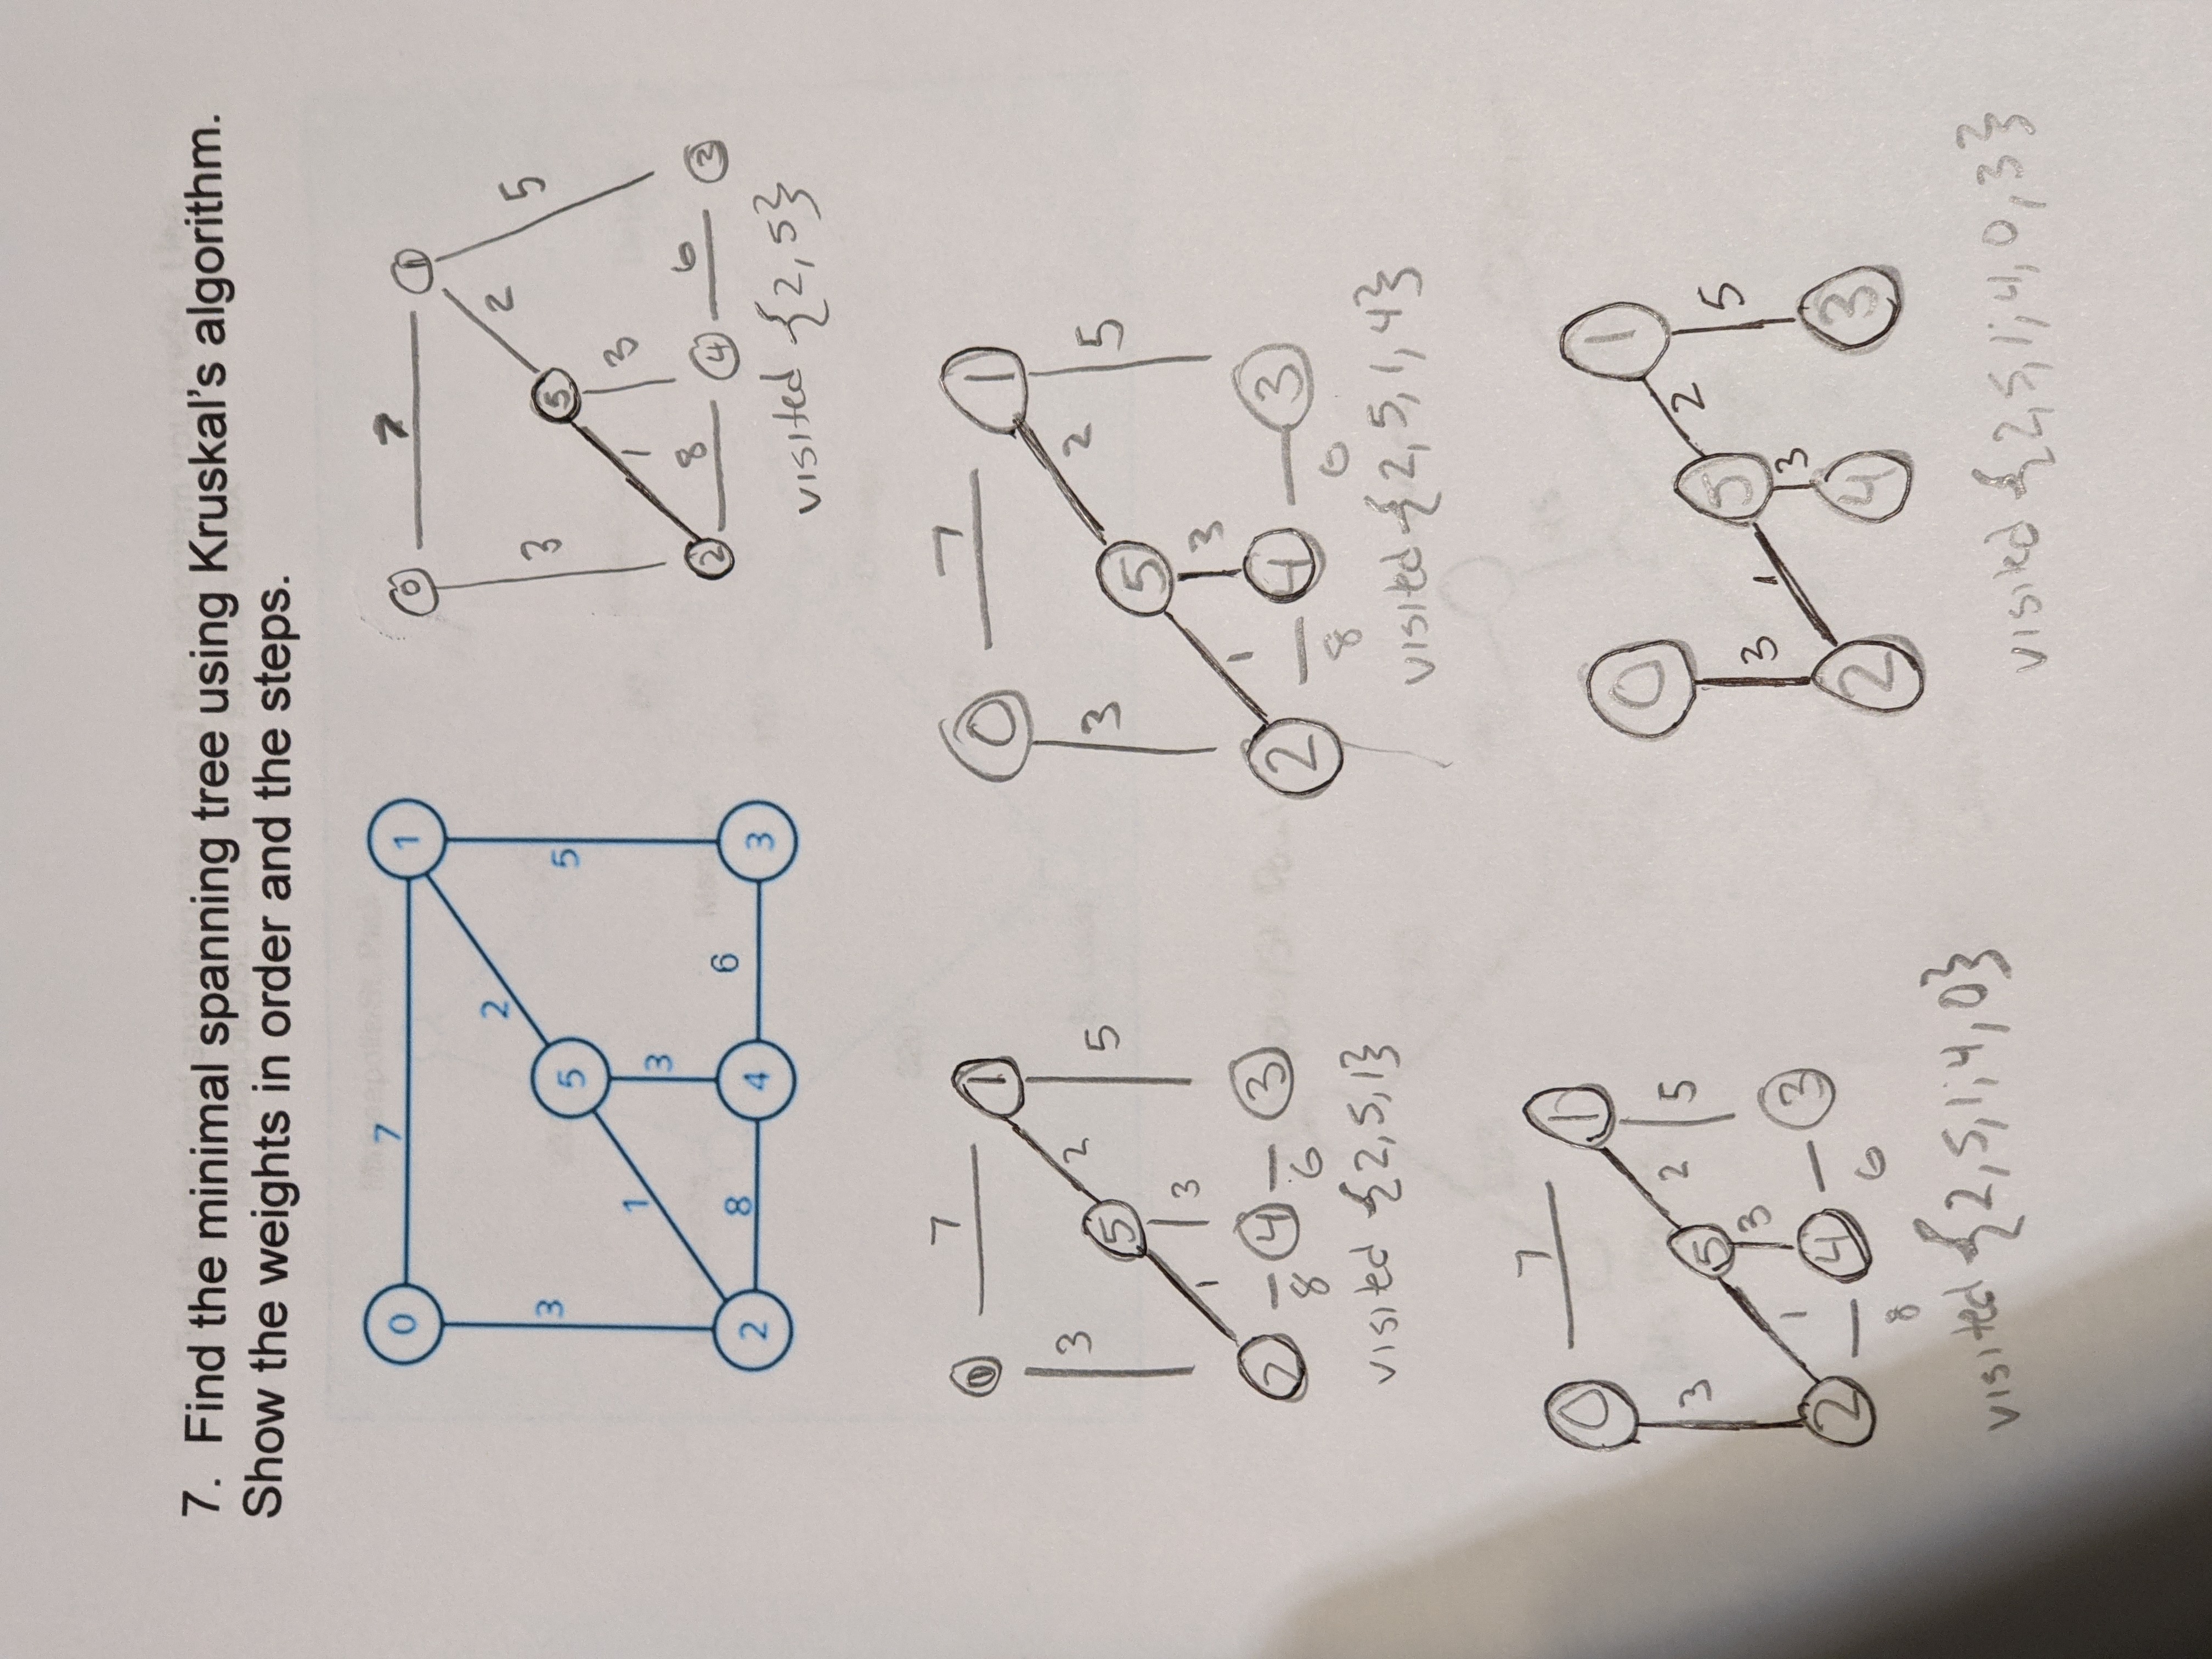 7. Find the minimal spanning tree using Kruskal's algorithm.
Show the weights in order and the steps.
0 7 1
2
3 5 5
1 3
6
2 8 4 3
0 7 1
2
3 5 5
1 3
8 6
2 4 3
visited {2,5}
7
0 1
3 2 5
5
1 3
2 4 3
8 6
visited {2,5,1}
7
0 1
3 2 5
5
1 3
2 4 3
8 6
visited {2,5,1,4}
7
0 1
3 2 5
5
1 3
2 4 3
8 6
visited {2,5,1,4,0}
0 1
2
3 5 5
1 3
2 4 3
visited {2,5,1,4,0,3}